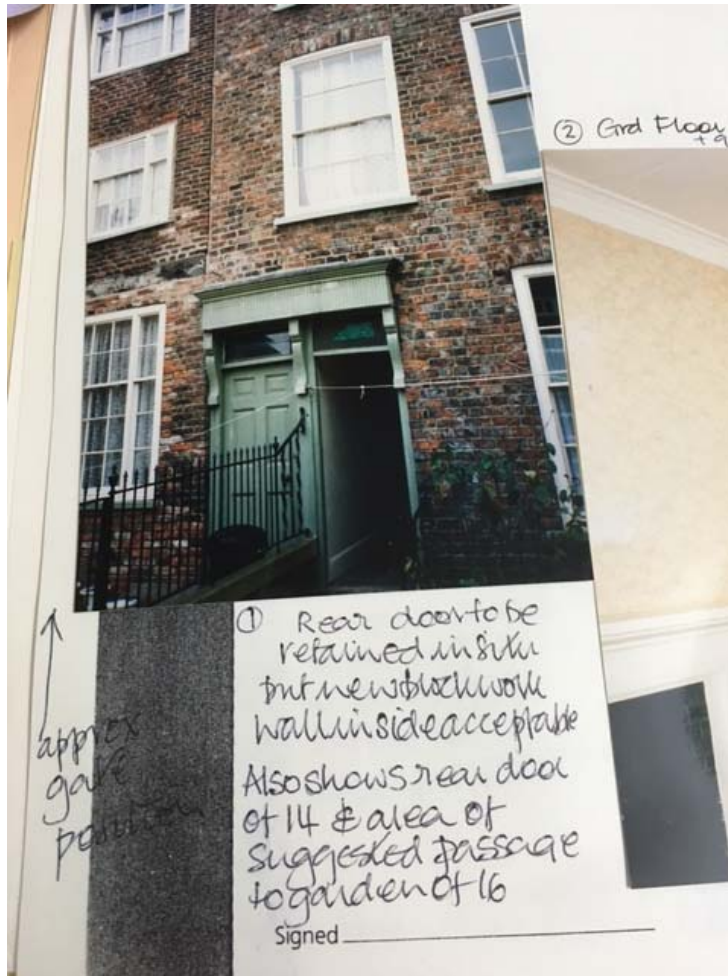 ② Grd Floor
① Rear door to be
retained in situ
but new blockwork
wall inside acceptable
Also shows rear door
of 14 & area of
suggested passage
to garden of 16
approx
gate
position
Signed